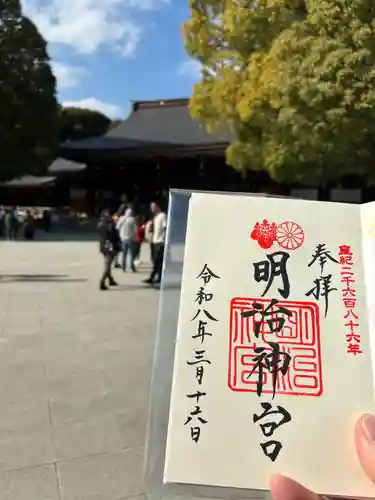 皇紀二千六百八十六年
奉拝
明治神宮
令和八年三月十六日